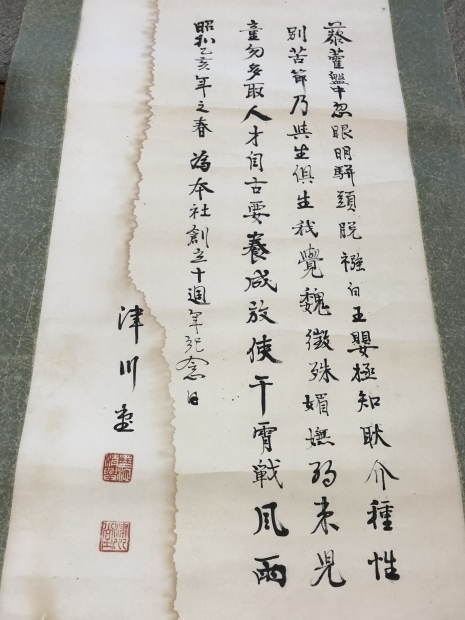 藜藿盤中忽眼明駢頭脫襁白玉嬰極知耿介種性
別苦節乃與生俱生我覺魏徵殊媚嫵約束兒
童勿多取人才自古要養成放使干霄戰風雨
昭和乙亥年之春 為本社創立十週年紀念日
津川